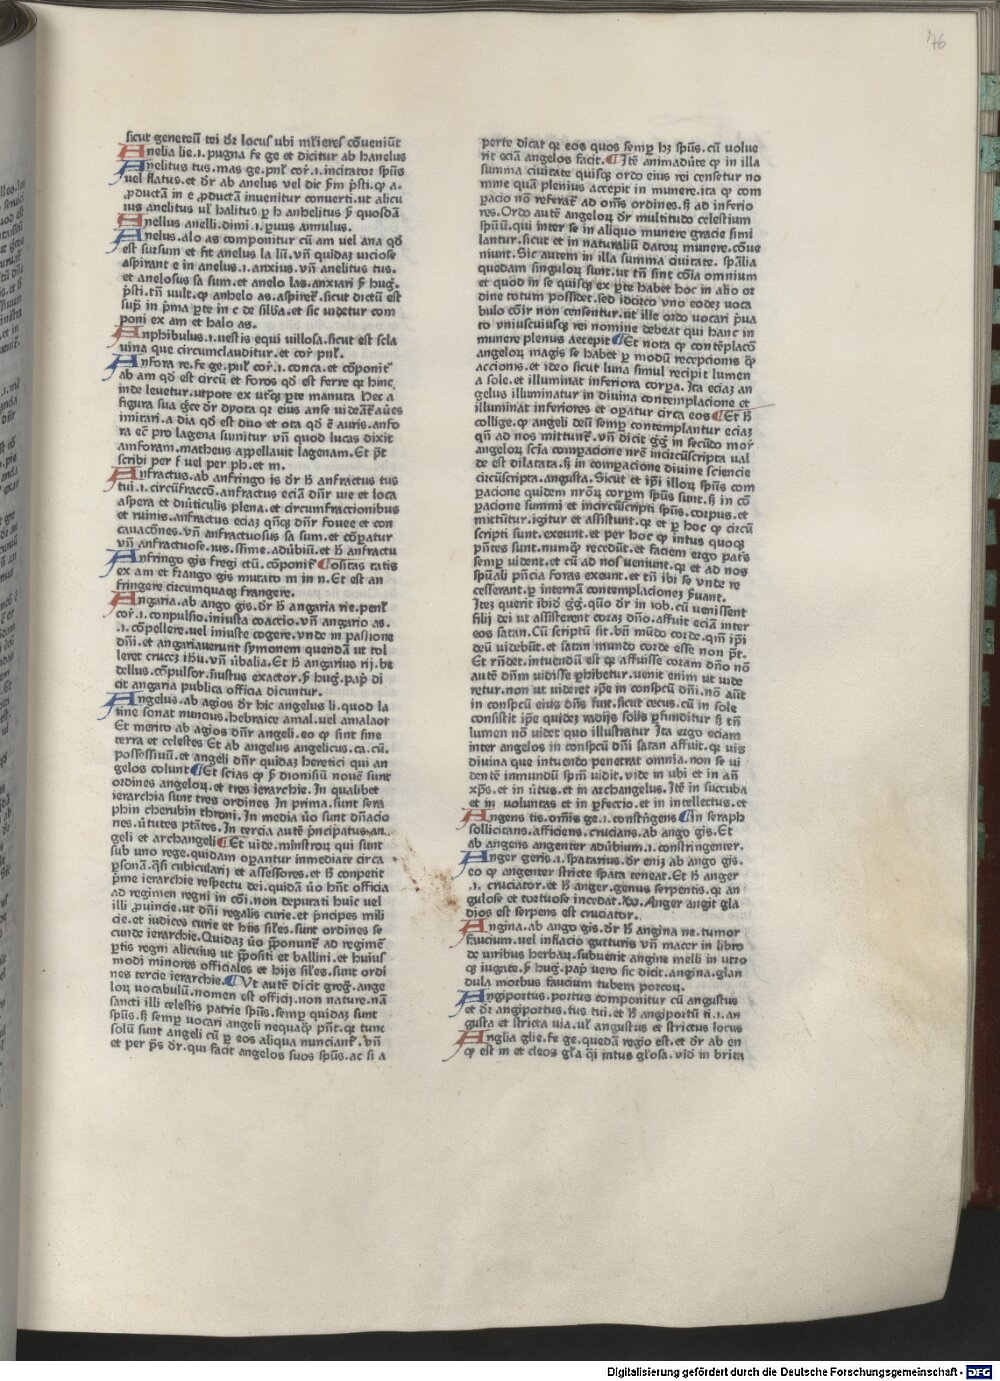 76
sicut geneteū tei d̄r locus ubi mĺieres cōveniūt
Anelia lie.i.pugna fe ge et dicitur ab hanelus
Anelitus tus.mas ge.pnĺ cor̄.i.incitator spūs
vel flatus.et d̄r ab anelus vel dic s̄m p̄sti.ꝙ a.
ꝓductā in e ꝓductā invenitur converti.ut alicu
ius anelitus uĺ halitus ꝑ h anhelitus s̄ quosdā
Anellus anelli.dimi.i.ꝑuus annulus.
Anelus.alo as componitur cū am vel ana qd̄
est sursum et fit anelus la lū.vn̄ quidaꝫ viciose
aspirant e in anelus.i.anxius.vn̄ anelitus tus.
et anelosus sa sum.et anelo las.anxiari s̄ hug.
p̄sti.tn̄ vult.ꝙ anhelo as.aspiret̄.sicut dictū est
sup̄ in p̄ma ꝑte in c de silb̄a.et sic videtur com
poni ex am et halo as.
Anphibulus.i.vestis equi villosa.sicut est scla
vina que circumclauditur.et cor̄ pnĺ.
Anfora re.fe ge.pnĺ cor̄.i.conca.et cōponit̄
ab am qd̄ est circū et foros qd̄ est ferre qꝛ hinc
inde levetur.utpote ex utᷓqꝫ ꝑte manuta Hec a
figura sua g̅ce d̄r dyota qꝛ eius anse videāt̄ aures
imitari.a dia qd̄ est duo et ota qd̄ ē auris.anfo
ra ec̄ pro lagena sumitur vn̄ quod lucas dixit
amforam.matheus appellavit lagenam.Et p̄t
scribi per f vel per ph.et m.
Anfractus.ab anfringo is d̄r h̄ anfractus tus
tui.i.circūfraccō.anfractus eciā dn̄r vie et loca
aspera et diuticulis plena.et circumfractionibus
et ruinis.anfractus eciaꝫ qn̄qꝫ dn̄r fovee et con
cavacōnes.vn̄ anfractuosus sa sum.et cōꝑatur
vn̄ anfractuose.ius.ssime.adūbiū.et h̄ anfractu
Anfringo gis fregi ctū.cōponit̄ ositas tatis
ex am et frango gis mutato m in n.Et est an
fringere circumquaqꝫ frangere.
Angaria.ab ango gis.d̄r h̄ angaria rie.penĺ
cor̄.i.conpulsio.iniusta coaccio.vn̄ angario as.
.i.cōpellere.vel iniuste cogere.vnde in passione
dn̄i.et angariaverunt symonem quendā ut tol
leret cruceꝫ ihū.vn̄ ūbalia.Et h̄ angarius rij.be
dellus.cōpulsor.iustus exactor.s̄ hug.pap̄ di
cit angaria publica officia dicuntur.
Angelus.ab agios d̄r hic angelus li.quod la
tine sonat nuncius.hebraice amal.vel amalaot
Et merito ab agios dn̄r angeli.eo ꝙ sint sine
terra et celestes Et ab angelus angelicus.ca.cū.
possessivū.et angeli dn̄r quidaꝫ heretici qui an
gelos colunt Et scias ꝙ s̄ dionisiū novē sunt
ordines angeloꝝ.et tres ierarchie.In qualibet
ierarchia sunt tres ordines In prima.sunt sera
phin cherubin throni.In media ūo sunt dn̄acio
nes.ūtutes ptātes.In tercia autē p̄ncipatus.an
geli et archangeli Et vide.ministroꝝ qui sunt
sub uno rege.quidam oꝑantur inmediate circa
ꝑsonā.qͣsi cubicularij et assessores.et h̄ conpetit
p̄me ierarchie respectu dei.quidā ūo hn̄t officia
ad regimen regni in cōi.non deputati huic vel
illi ꝓvincie.ut dn̄i regalis curie.et p̄ncipes mili
cie.et iudices curie et hiis siles.sunt ordines se
cunde ierarchie.Quidaꝫ ūo p̄ponunt̄ ad regimē
ꝑtis regni alicuius ut p̄positi et ballini.et huius
modi minores officiales et hijs siles.sunt ordi
nes tercie ierarchie. Vt autē dicit greg̅.ange
loꝝ vocabulū.nomen est officij.non nature.nā
sancti illi celestis patrie spūs.semꝑ quidaꝫ sunt
spūs.s̄ semꝑ vocari angeli nequaqͣꝫ pn̄t.qꝛ tunc
solū sunt angeli cū ꝑ eos aliqua nunciant̄.vn̄
et per p̄s d̄r.qui facit angelos suos spūs.ac si a
perte dicat qꝛ eos quos semꝑ hꝫ spūs.cū volue
rit eciā angelos facit. Itē animadūte ꝙ in illa
summa civitate quisqꝫ ordo eius rei censetur no
mine quā plenius accepit in munere.ita ꝙ com
ꝑacio nō referat̄ ad om̄s ordines.s̄ ad inferio
res.Ordo autē angeloꝝ d̄r multitudo celestium
spūū.qui inter se in aliquo munere gracie simi
lantur.sicut et in naturaliū datoꝝ munere.cōve
niunt.Sic autem in illa summa civitate.sp̄alia
quedam singuloꝝ sunt.ut tn̄ sint cōia omnium
et quod in se quisqꝫ ex ꝑte habet hoc in alio or
dine totum possidet.sed idcirco vno eodeꝫ voca
bulo cōiṙ non censentur.ut ille ordo vocari p̄ua
to vniuscuiusqꝫ rei nomine debeat qui hanc in
munere plenius accepit Et nota ꝙ contēplacō
angeloꝝ magis se habet ꝑ modū recepcionis qͣꝫ
accionis.et ideo sicut luna simul recipit lumen
a sole.et illuminat inferiora corꝑa.Ita eciaꝫ an
gelus illuminatur in divina contemplacione et
illuminat inferiores et oꝑatur circa eos Et h̄
collige.ꝙ angeli deū semꝑ contemplantur eciaꝫ
qn̄ ad nos mittunt̄.vn̄ dicit g̅g̅ in secūdo mor̄
angeloꝝ scīa comꝑacione nrē incircūscripta val
de est dilatata.s̄ in comꝑacione divine sciencie
circūscripta.angusta.Sicut et ip̄i illoꝝ spūs com
ꝑacione quidem nr̄oꝝ corꝑm spūs sunt.s̄ in cō
ꝑacione summi et incircūscripti spūs.corpus.et
mittūtur.igitur et assistunt.qꝛ et ꝑ hoc ꝙ circū
scripti sunt.exeunt.et per hoc ꝙ intus quoqꝫ
pn̄tes sunt.numqͣꝫ recedūt.et faciem ergo patͥs
semꝑ vident.et cū ad nos veniunt.qꝛ et ad nos
spūali pn̄cia foras exeunt.et tn̄ ibi se vnde re
cesserant.ꝑ internā contemplacioneꝫ s̄vant.
Iteꝫ querit ibid̄ g̅g̅.quō d̄r in iob.cū venissent
filij dei ut assisterent coraꝫ dn̄o.affuit eciā inter
eos satan.Cū scriptū sit.bn̄ mūdo corde.qm̄ ip̄i
deū videbūt.et satan mundo corde esse non p̄t.
Et rn̄det.intuendū est qꝛ affuisse coram dn̄o nō
autē dn̄m vidisse ꝑhibetur.venit enim ut vide
retur.non ut videret ip̄e in conspcū dn̄i.nō aūt
in conspcū eius dn̄s fuit.sicut cecus.cū in sole
consistit ip̄e quideꝫ radijs solis ꝑfunditur s̄ tn̄
lumen nō videt quo illustratur Ita ergo eciam
inter angelos in conspcū dn̄i satan affuit.qꝛ vis
divina que intuendo penetrat omnia.non se vi
dentē inmundū spm̄ vidit.vide in ubi et in an̄
xp̄s.et in ūtus.et in archangelus.Itē in succuba
et in voluntas et in ꝑfeccio.et in intellectus.et
Angens tis.om̄is ge.i.constn̄gens in seraph
sollicitans.afficiens.crucians.ab ango gis.Et
ab angens angenter adūbium.i.constringenter.
Anger geris.i.spatarius.d̄r eniꝫ ab ango gis.
eo ꝙ angenter stricte spata teneat.Et h̄ anger
.i. cruciator.et h̄ anger.genus serpentis.qꝛ an
gulose et tortuose incedat.Xv.Anger angit gla
dios est serpens est cruciator.
Angina.ab ango gis.d̄r h̄ angina ne.tumor
faucium.vel inflacio gutturis vn̄ macer in libro
de viribus herbaꝝ.subvenit angine melli in vtro
qꝫ iugate.s̄ hug.pap̄ vero sic dicit.angina.glan
dula morbus faucium tubera porcoꝝ.
Angiportus.portus componitur cū angustus
et d̄r angiportus.tus tui.et h̄ angiportū ti.i.an
gusta et stricta via.uĺ angustus et strictus locus
Anglia glie.fe ge.quedā regio est.et d̄r ab en
ꝙ est in et cleos gĺa qͣi intus gĺosa.vid̄ in brita
Digitalisierung gefördert durch die Deutsche Forschungsgemeinschaft - DFG